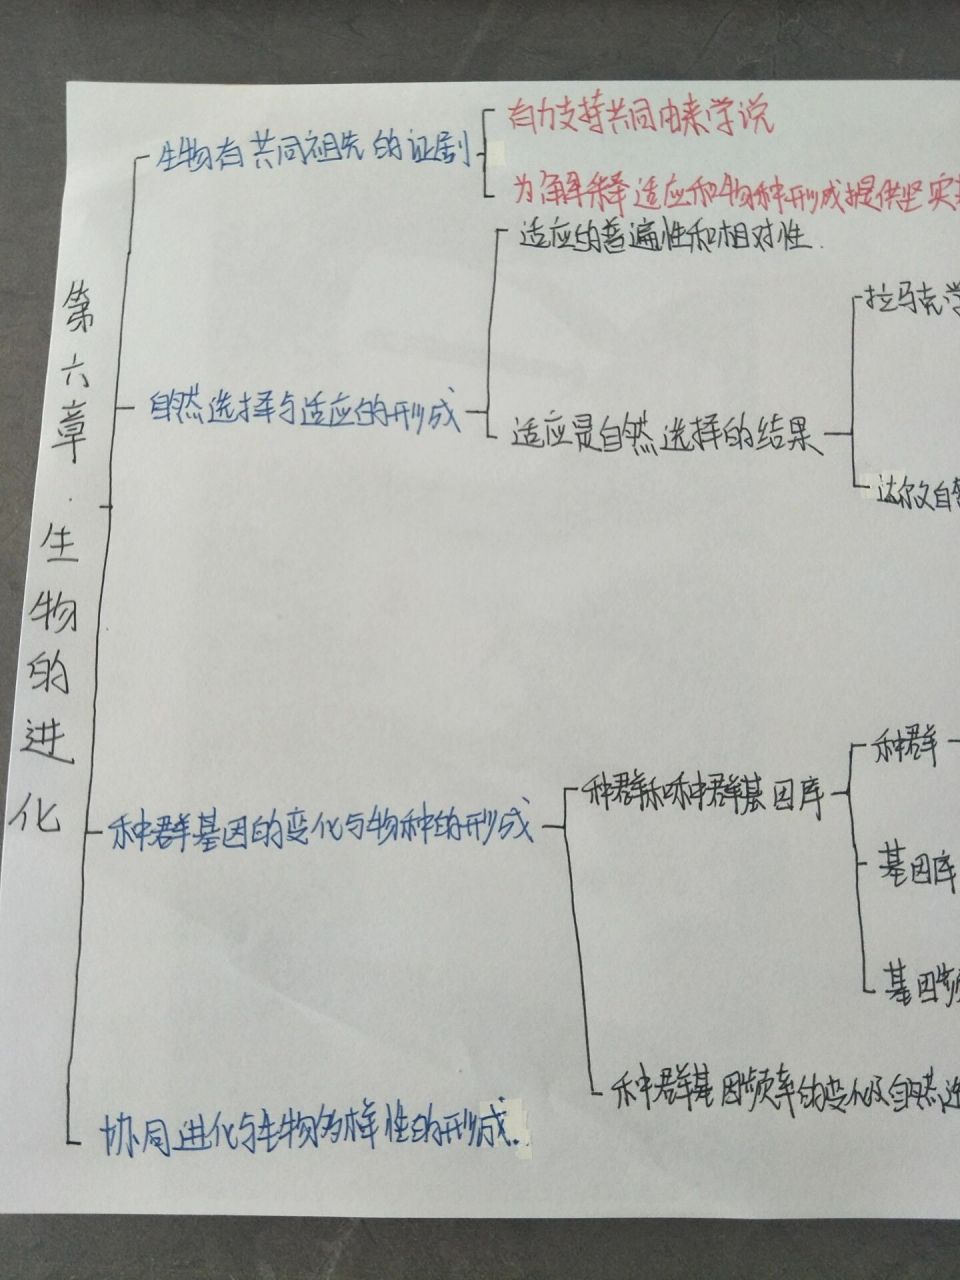 第六章·生物的进化
生物有共同祖先的证剧
有力支持共同由来学说
为解释适应和物种形成提供坚实
自然选择与适应的形成
适应的普遍性和相对性.
适应是自然选择的结果
拉马克学
达尔文自
种群基因的变化与物种的形成
种群和种群基因库
种群
基因库
基因频
种群基因频率的变化及自然选
协同进化与生物多样性的形成.